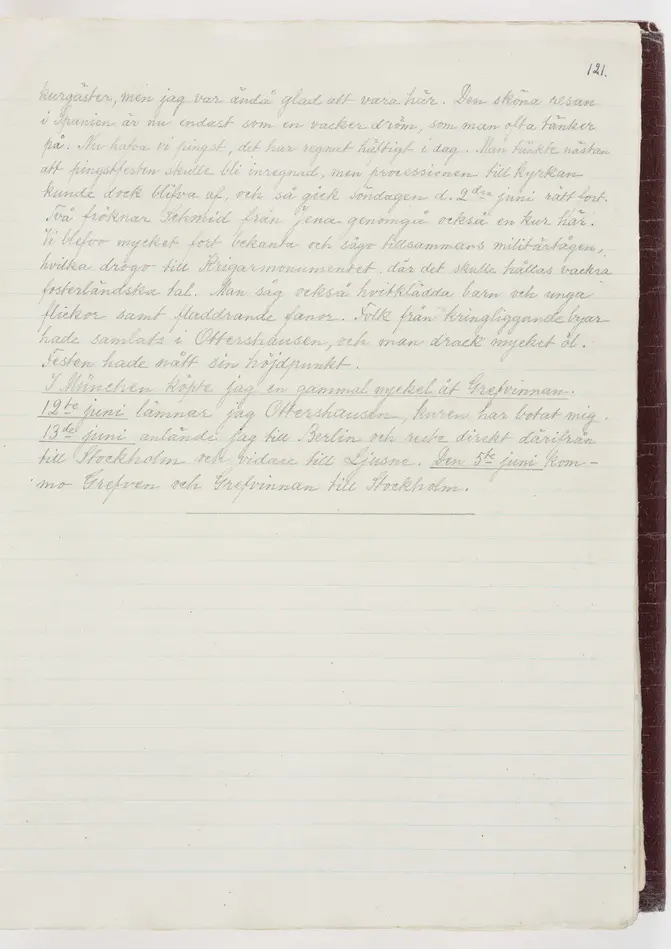 121.
kurgäster, men jag var ändå glad att vara här. Den sköna resan
i Spanien är nu endast som en vacker dröm, som man ofta tänker
på. Nu hafva vi pingst, det har regnat häftigt i dag. Man tänkte nästan
att pingstfesten skulle bli inregnad, men processionen till kyrkan
kunde dock blifva af, och så gick Söndagen d. 2dra juni rätt fort.
Två fröknar Schmid från Jena genomgå också en kur här.
Vi blefvo mycket fort bekanta och sågo tillsammans militärtågen,
hvilka drogo till Krigarmonumentet, där det skulle hållas vackra
fosterländska tal. Man såg också hvitklädda barn och unga
flickor samt fladdrande fanor. Folk från kringliggande byar
hade samlats i Ottershausen, och man drack mycket öl.
Festen hade nått sin höjdpunkt.
I München köpte jag en gammal nyckel åt Grefvinnan.
12te juni lämnar jag Ottershausen, kuren har botat mig.
13de juni anlände jag till Berlin och reste direkt därifrån
till Stockholm och vidare till Ljusne. Den 5te juni kom-
mo Grefven och Grefvinnan till Stockholm.